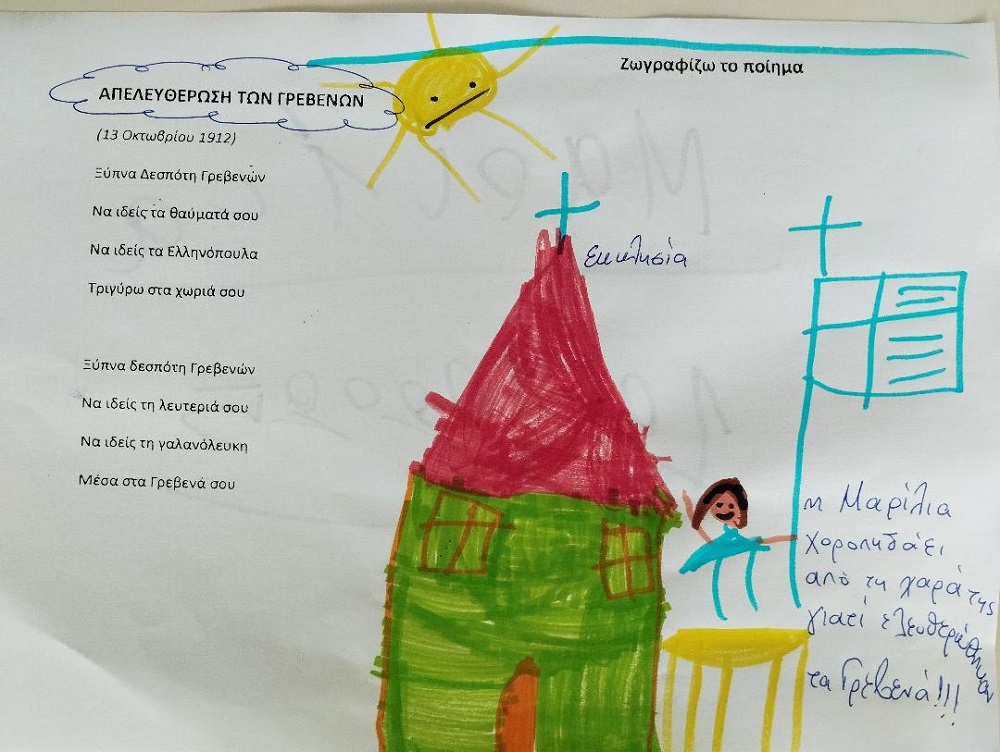 Ζωγραφίζω το ποίημα
ΑΠΕΛΕΥΘΕΡΩΣΗ ΤΩΝ ΓΡΕΒΕΝΩΝ
(13 Οκτωβρίου 1912)
Ξύπνα Δεσπότη Γρεβενών
Να ιδείς τα θαύματά σου
Να ιδείς τα Ελληνόπουλα
Τριγύρω στα χωριά σου
Ξύπνα δεσπότη Γρεβενών
Να ιδείς τη λευτεριά σου
Να ιδείς τη γαλανόλευκη
Μέσα στα Γρεβενά σου
εκκλησία
η Μαρίλια
χοροπηδάει
από τη χαρά της
γιατί ελευθερώθηκαν
τα Γρεβενά!!!